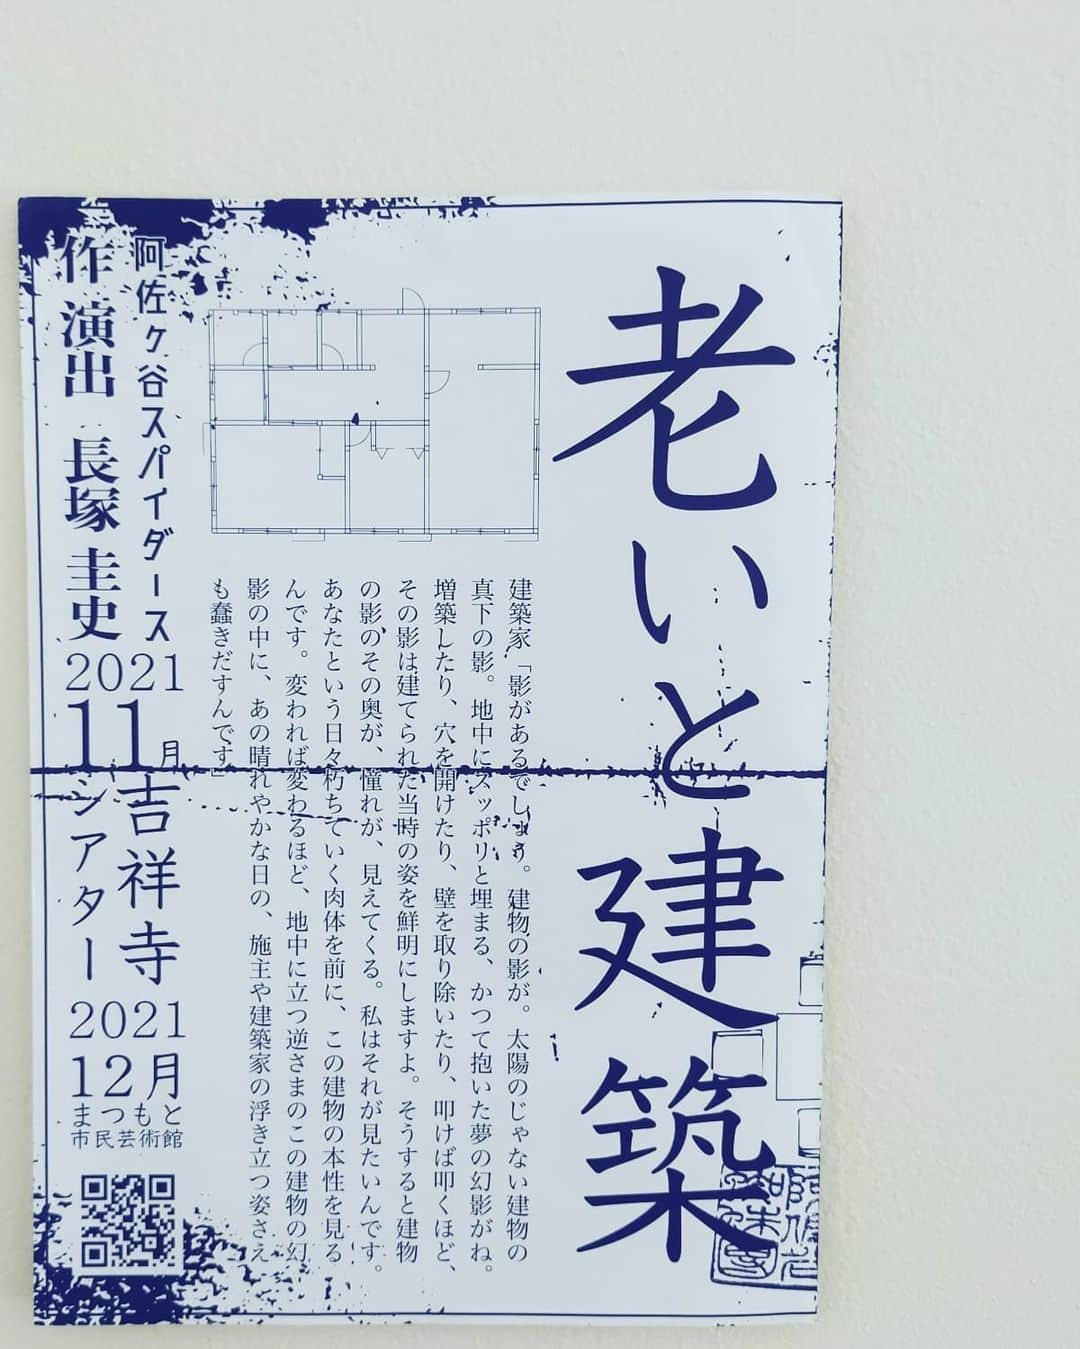 老いと建築
建築家「影があるでしょう。建物の影が。太陽のじゃない建物の
真下の影。地中にスッポリと埋まる、かつて抱いた夢の幻影がね。
増築したり、穴を開けたり、壁を取り除いたり、叩けば叩くほど、
その影は建てられた当時の姿を鮮明にしますよ。そうすると建物
の影のその奥が、憧れが、見えてくる。私はそれが見たいんです。
あなたという日々朽ちていく肉体を前に、この建物の本性を見る
んです。変われば変わるほど、地中に立つ逆さまのこの建物の幻
影の中に、あの晴れやかな日の、施主や建築家の浮き立つ姿さえ
も蠢きだすんです」
阿佐ヶ谷スパイダース
作 演出 長塚 圭史
2021
11月吉祥寺
シアター
2021
12月
まつもと
市民芸術館